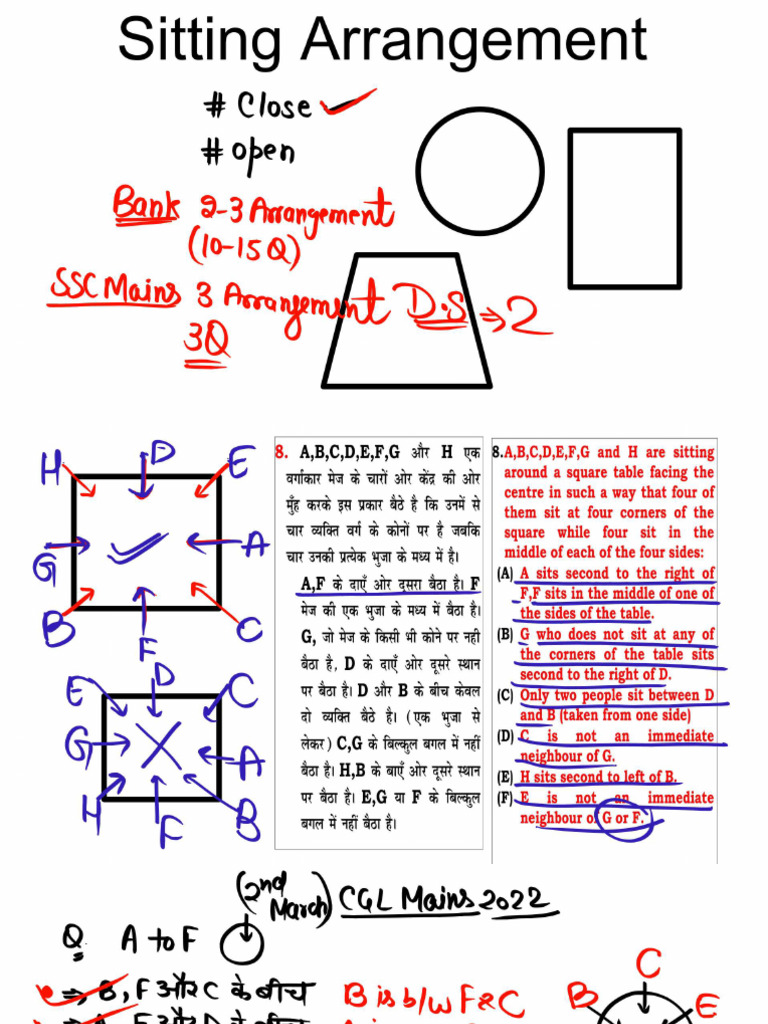 Sitting Arrangement
# Close
# open
Bank 2-3 Arrangement
(10-15 Q)
SSC Mains 3 Arrangement D.S ⇒ 2
3Q
H D E
G A
B F C
E D C
G A
H F B
8. A,B,C,D,E,F,G और H एक
वर्गाकार मेज के चारों ओर केंद्र की ओर
मुँह करके इस प्रकार बैठे है कि उनमें से
चार व्यक्ति वर्ग के कोनों पर है जबकि
चार उनकी प्रत्येक भुजा के मध्य में है।
A,F के दाएँ ओर दूसरा बैठा है। F
मेज की एक भुजा के मध्य में बैठा है।
G, जो मेज के किसी भी कोने पर नही
बैठा है, D के दाएँ ओर दूसरे स्थान
पर बैठा है। D और B के बीच केवल
दो व्यक्ति बैठे है। (एक भुजा से
लेकर) C,G के बिल्कुल बगल में नहीं
बैठा है। H,B के बाएँ ओर दूसरे स्थान
पर बैठा है। E,G या F के बिल्कुल
बगल में नहीं बैठा है।
8.A,B,C,D,E,F,G and H are sitting
around a square table facing the
centre in such a way that four of
them sit at four corners of the
square while four sit in the
middle of each of the four sides:
(A) A sits second to the right of
F,F sits in the middle of one of
the sides of the table.
(B) G who does not sit at any of
the corners of the table sits
second to the right of D.
(C) Only two people sit between D
and B (taken from one side)
(D) C is not an immediate
neighbour of G.
(E) H sits second to left of B.
(F) E is not an immediate
neighbour of G or F.
(2nd March) CGL Mains 2022
Q. A to F
⇒ B, F और C के बीच B is b/w F & C
C
B E